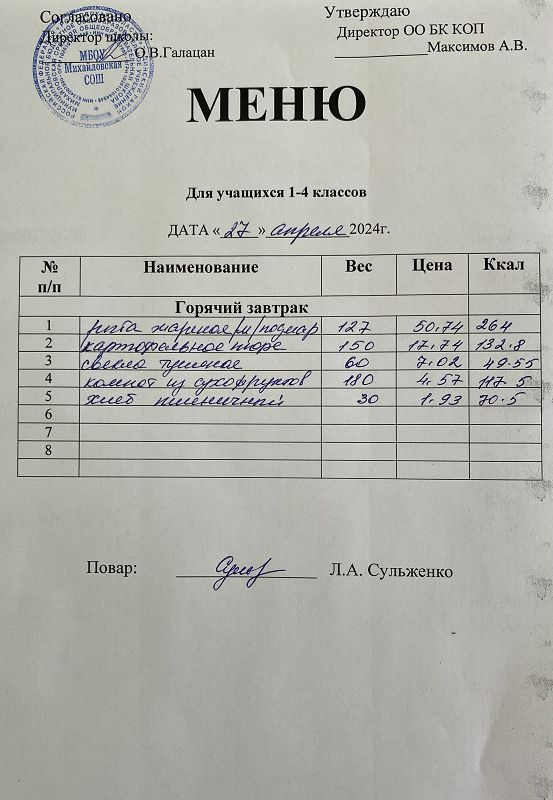 Согласовано Утверждаю
Директор школы: Директор ОО БК КОП
О.В.Галацан Максимов А.В.
МБОУ
Михайловская
СОШ
МЕНЮ
Для учащихся 1-4 классов
ДАТА «27» апреля 2024г.
№ п/п Наименование Вес Цена Ккал
Горячий завтрак
1 127 50.74 264
2 картофельное пюре 150 17.74 132.8
3 свекла тушеная 60 7.02 49.55
4 компот из сухофруктов 180 4.57 117.5
5 хлеб пшеничный 30 1.93 70.5
6
7
8
Повар: Л.А. Сульженко